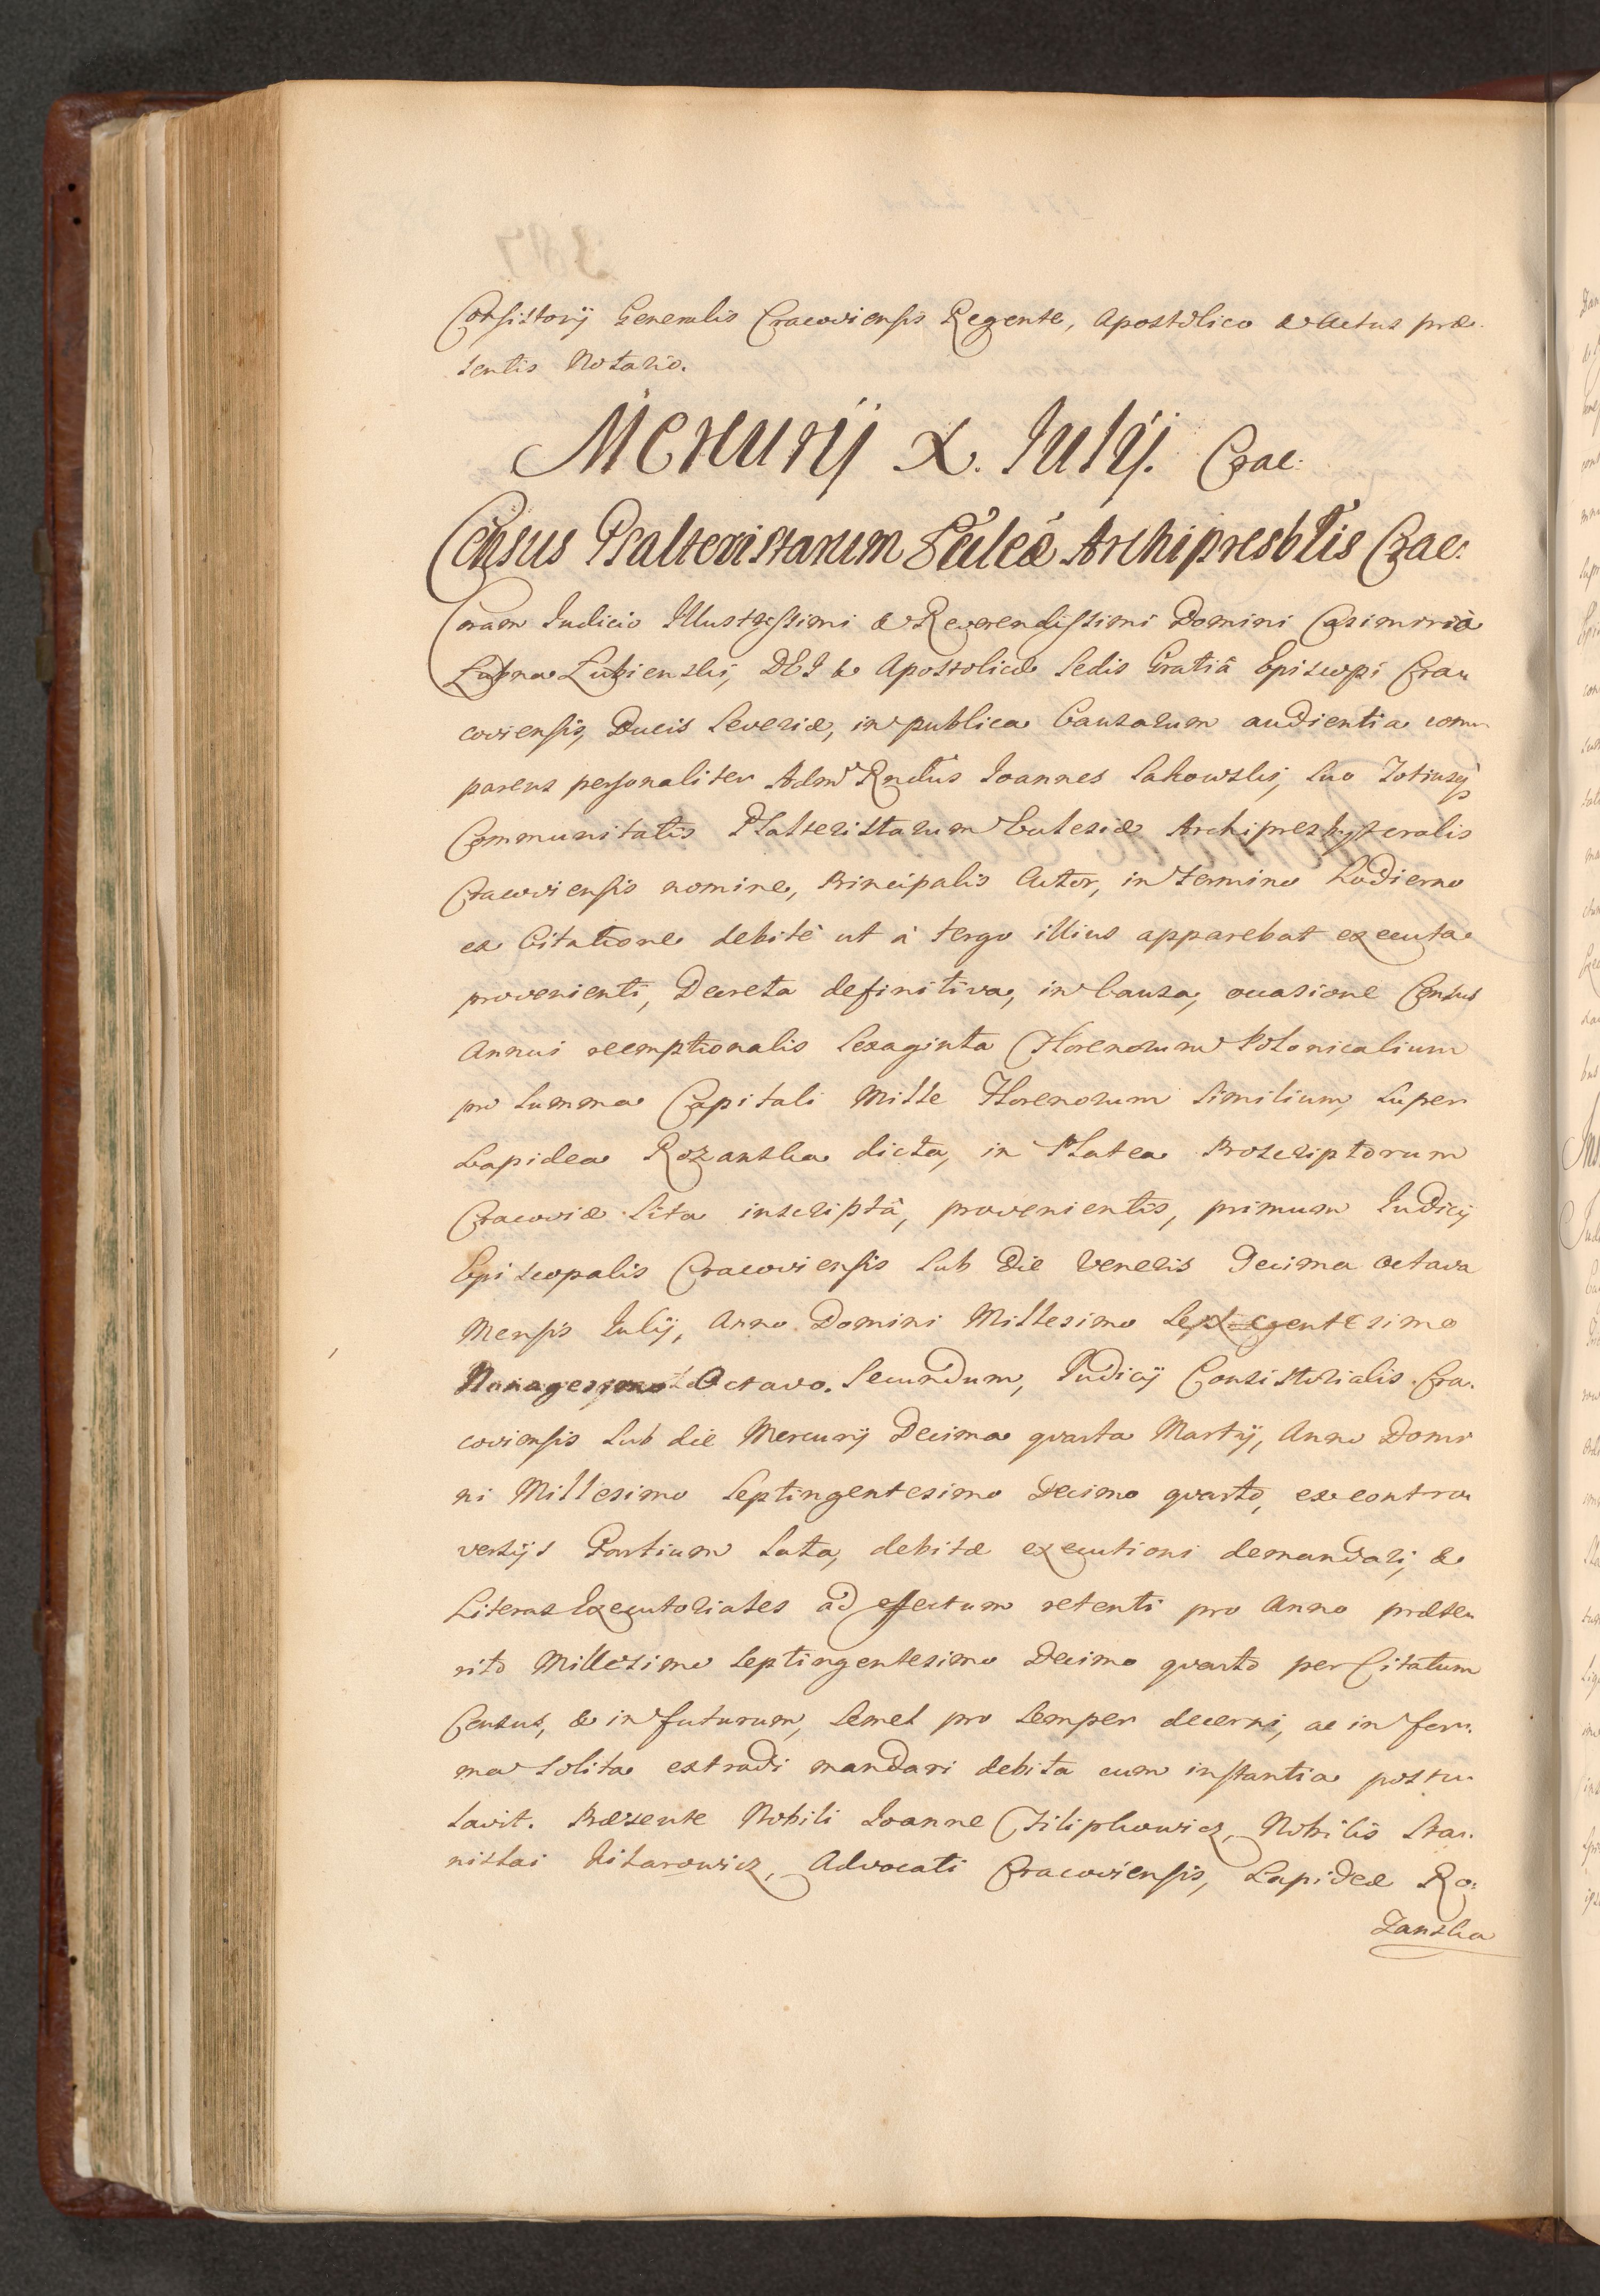 Consistorij Generalis Cracoviensis Regente, Apostolico & Actus præ-
sentis Notario.
Mercurij X. Julij. Crac:
Census Psalteristarum Eccleæ Archipresbtlis Crac:
Coram Judicio Illustrissimi & Reverendissimi Domini Casimiri à
Lubna Lubienski, DEI & Apostolicæ Sedis Gratiâ Episcopi Cra-
coviensis, Ducis Severiæ, in publica Causarum audientia com-
parens personaliter Adm Rndus Joannes Sakowski, suo totiusq
Communitatis Psalteristarum Ecclesiæ Archipresbyteralis
Cracoviensis nomine, Principalis Actor, in termino hodierno
ex Citatione debitè ut à tergo illius apparebat executa
provenienti, Decreta definitiva, in Causa, occasione Census
Annui reemptionalis Sexaginta Florenorum Polonicalium
pro Summa Capitali Mille Florenorum Similium, super
Lapidea Rozanska dicta, in Platea Proscriptorum
Cracoviæ Sita inscriptâ, provenientis, primum Judicij
Episcopalis Cracoviensis Sub die Veneris Decima Octava
Mensis Julij, Anno Domini Millesimo
Octavo. Secundum, Judicij Consistorialis Cra-
coviensis Sub die Mercurij Decima quarta Martij, Anno Domi-
ni Millesimo Septingentesimo Decimo quarto, ex contro-
versijs Partium Lata, debitæ executioni demandari, &
Literas Executoriales ad effectum retenti pro Anno præte-
rito Millesimo Septingentesimo Decimo quarto per Citatum
Census, & in futurum, Semel pro Semper decerni, ac in for-
ma Solita extradi mandari debita cum instantia postu-
lavit. Præsente Nobili Joanne Filipkowicz, Nobilis Sta-
nislai, Advocati Cracoviensis, Lapideæ Ro-
zanska